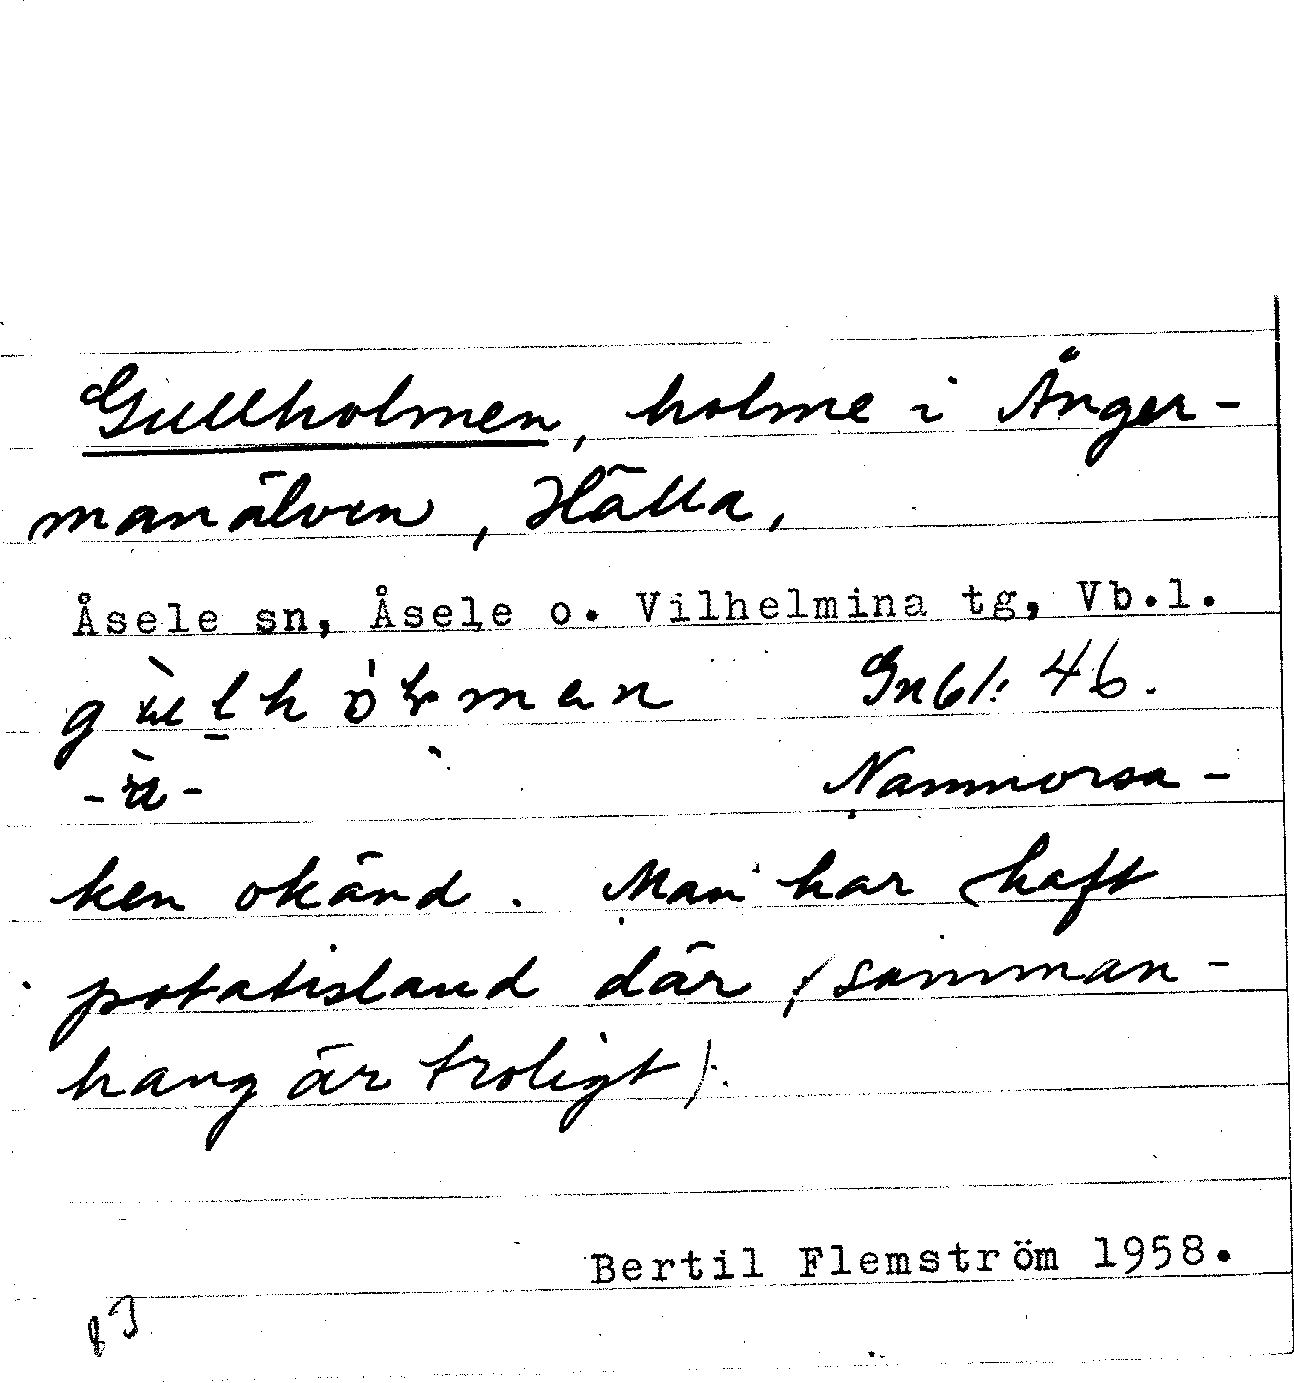 Gullholmen, holme i Ånger-
manälven, Hälla,
Åsele sn, Åsele o. Vilhelmina tg, Vb.l.
Gnbl: 46.
Namnorsa-
ken okänd. Man har haft
potatisland där (samman-
hang är troligt).
Bertil Flemström 1958.